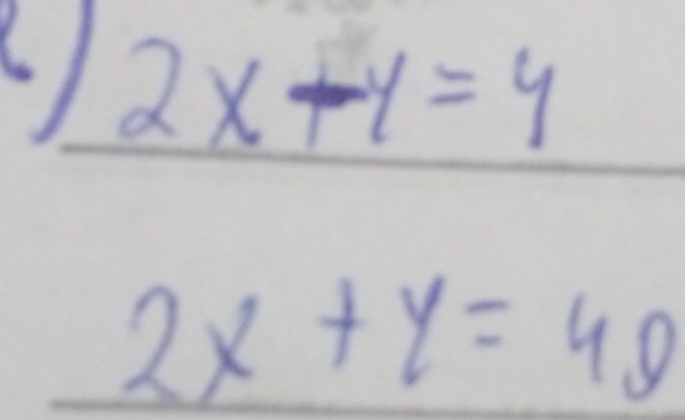 e) 2x - y = 4
2x + y = 49